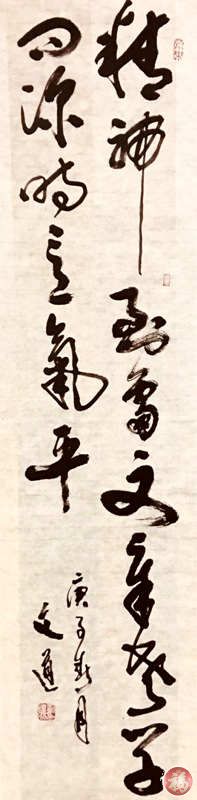 精神到處文章老學
問深時意氣平
庚子月
文通
福